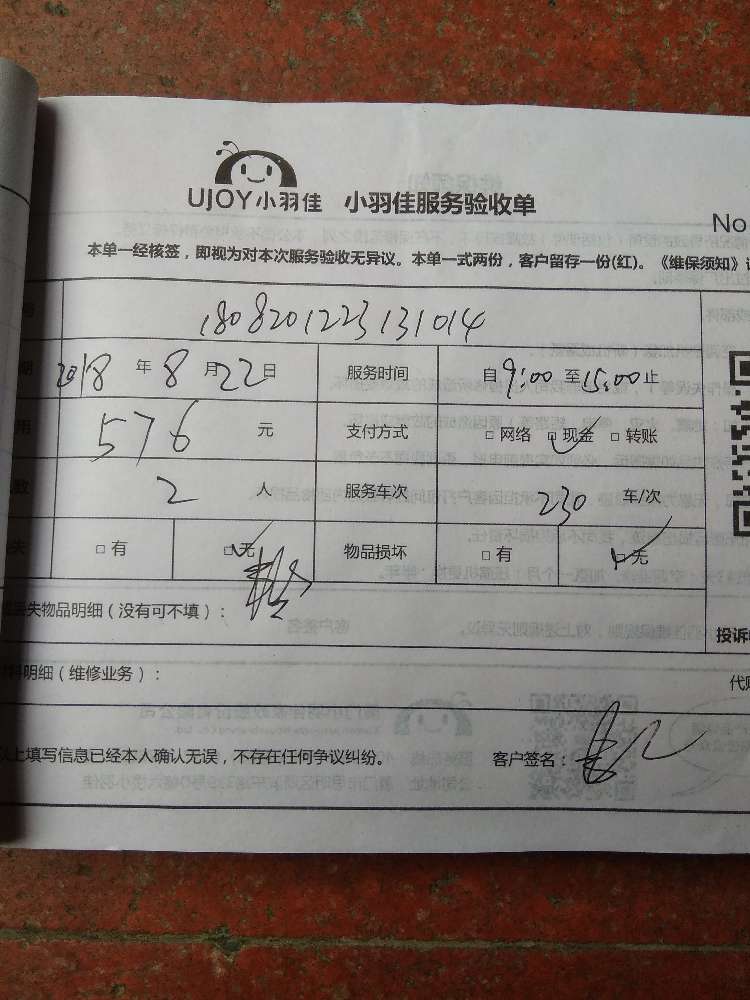 UJOY小羽佳 小羽佳服务验收单
No
本单一经核签，即视为对本次服务验收无异议。本单一式两份，客户留存一份(红)。《维保须知》
号 1808201223131014
期 2018 年 8 月 22 日 服务时间 自 9:00 至 15:00 止
用 576 元 支付方式 □ 网络 □ 现金 □ 转账
数 2 人 服务车次 230 车/次
失 □ 有 □ 无 物品损坏 □ 有 □ 无
丢失物品明细（没有可不填）：
投诉
料明细（维修业务）：
以上填写信息已经本人确认无误，不存在任何争议纠纷。 客户签名：